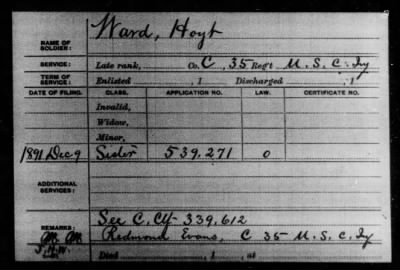 Ward, Hoyt
NAME OF SOLDIER:
SERVICE: Late rank, Co. C, 35 Reg't U. S. C. Iy
TERM OF SERVICE: Enlisted , 1 Discharged , 1
DATE OF FILING. CLASS. APPLICATION NO. LAW. CERTIFICATE NO.
Invalid,
Widow,
Minor,
1891 Dec 9 Sister 539.271 0
ADDITIONAL SERVICES:
See C. Cty- 339.612
REMARKS: Redmond Evans, C 35 U. S. C. Iy
Died , 1 , at